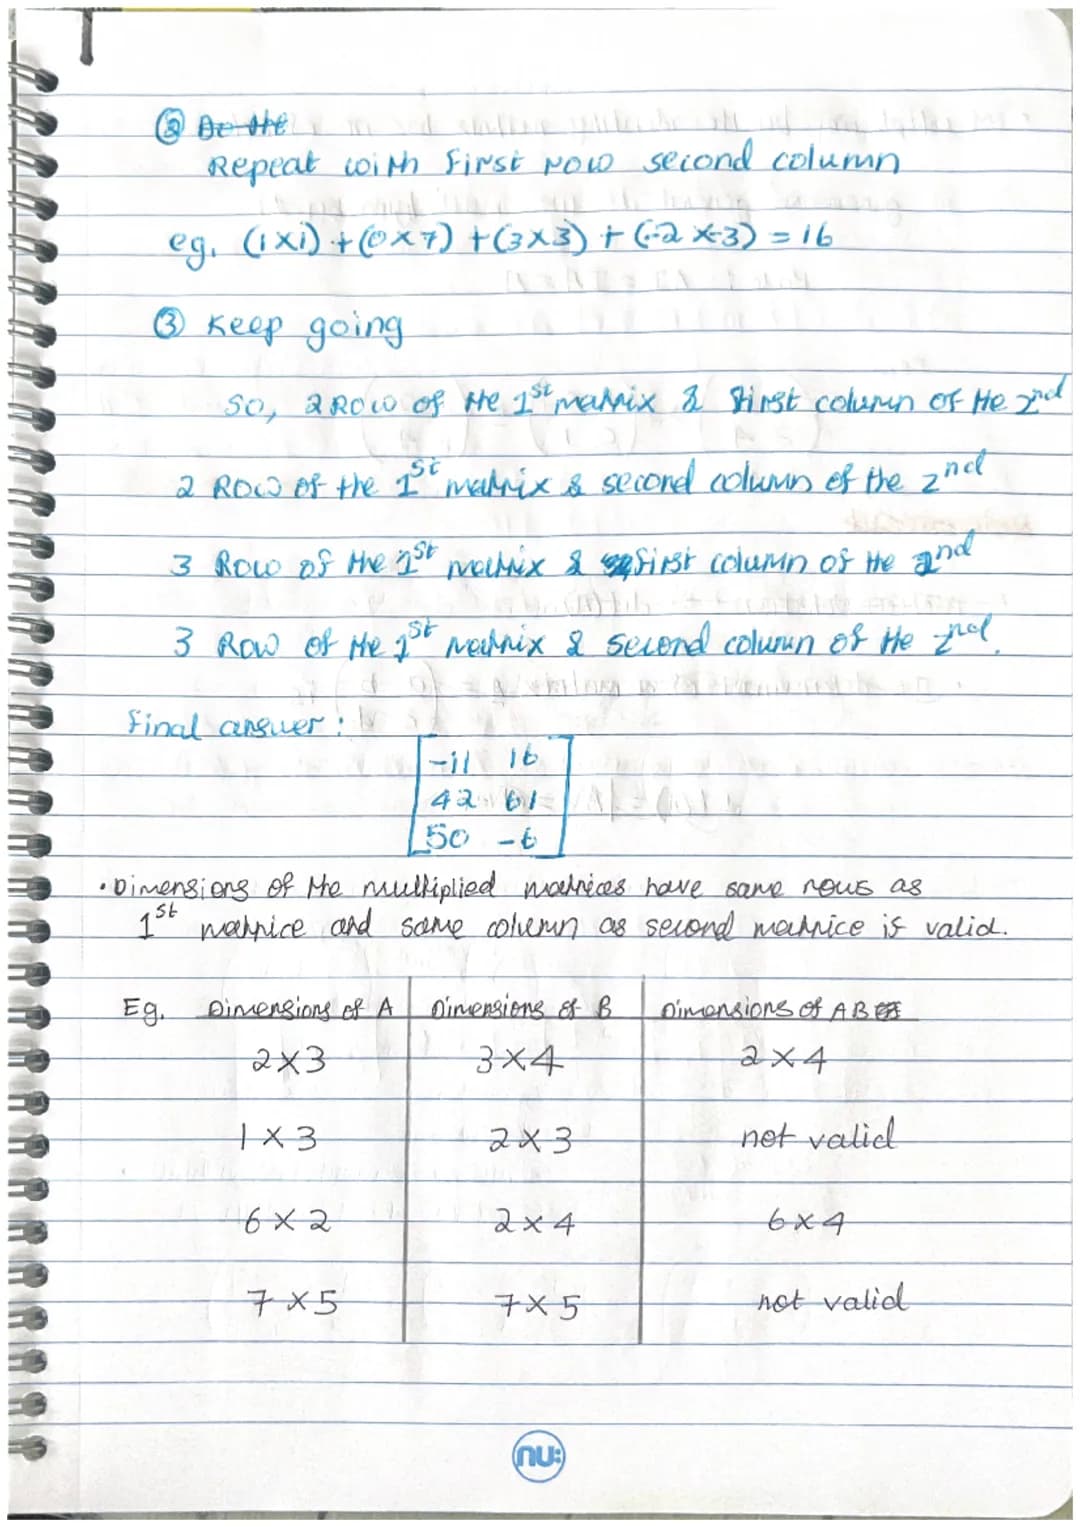 ② Do the
Repeat with first row second column
eg. (1×1) + (0×7) + (3×3) + (-2×-3) = 16
③ Keep going
So, 2 Row of the 1st matrix & first column of the 2nd
2 Row of the 1st matrix & second column of the 2nd
3 Row of the 1st matrix & first column of the 2nd
3 Row of the 1st matrix & second column of the 2nd.
final answer:
-11 16
42 61
50 -6
• Dimensions of the multiplied matrices have same rows as
1st matrice and same column as second matrice if valid.
Eg. Dimensions of A Dimensions of B Dimensions of AB
2×3 3×4 2×4
1×3 2×3 not valid
6×2 2×4 6×4
7×5 7×5 not valid
nu: